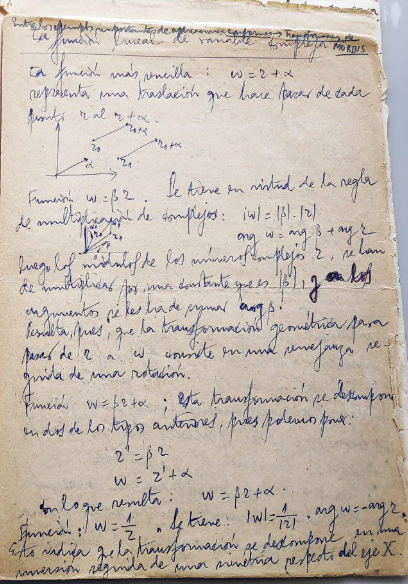 Entre los ejemplos importantes de aplicaciones conformes → Transformaciones de
MÖBIUS
La función lineal de variable compleja
La función más sencilla: w = z + α
representa una traslación que hace pasar de cada
punto z al z + α.
z₀ z₀+α
α z₀ z₀+α
Función w = βz. Se tiene en virtud de la regla
de multiplicación de complejos: |w| = |β|·|z|
arg w = arg β + arg z
luego los módulos de los números complejos z, se han
de multiplicar por una constante que es |β|, y a los
argumentos se les ha de sumar arg β.
Resulta, pues, que la transformación geométrica para
pasar de z a w, consiste en una semejanza se-
guida de una rotación.
Función w = βz + α; esta transformación se descompone
en dos de los tipos anteriores, pues podemos poner:
z' = βz
w = z' + α
con lo que resulta: w = βz + α.
Función: w = 1/z. Se tiene: |w| = 1/|z|, arg w = -arg z.
Esto indica que la transformación se descompone en una
inversión seguida de una simetría respecto del eje X.